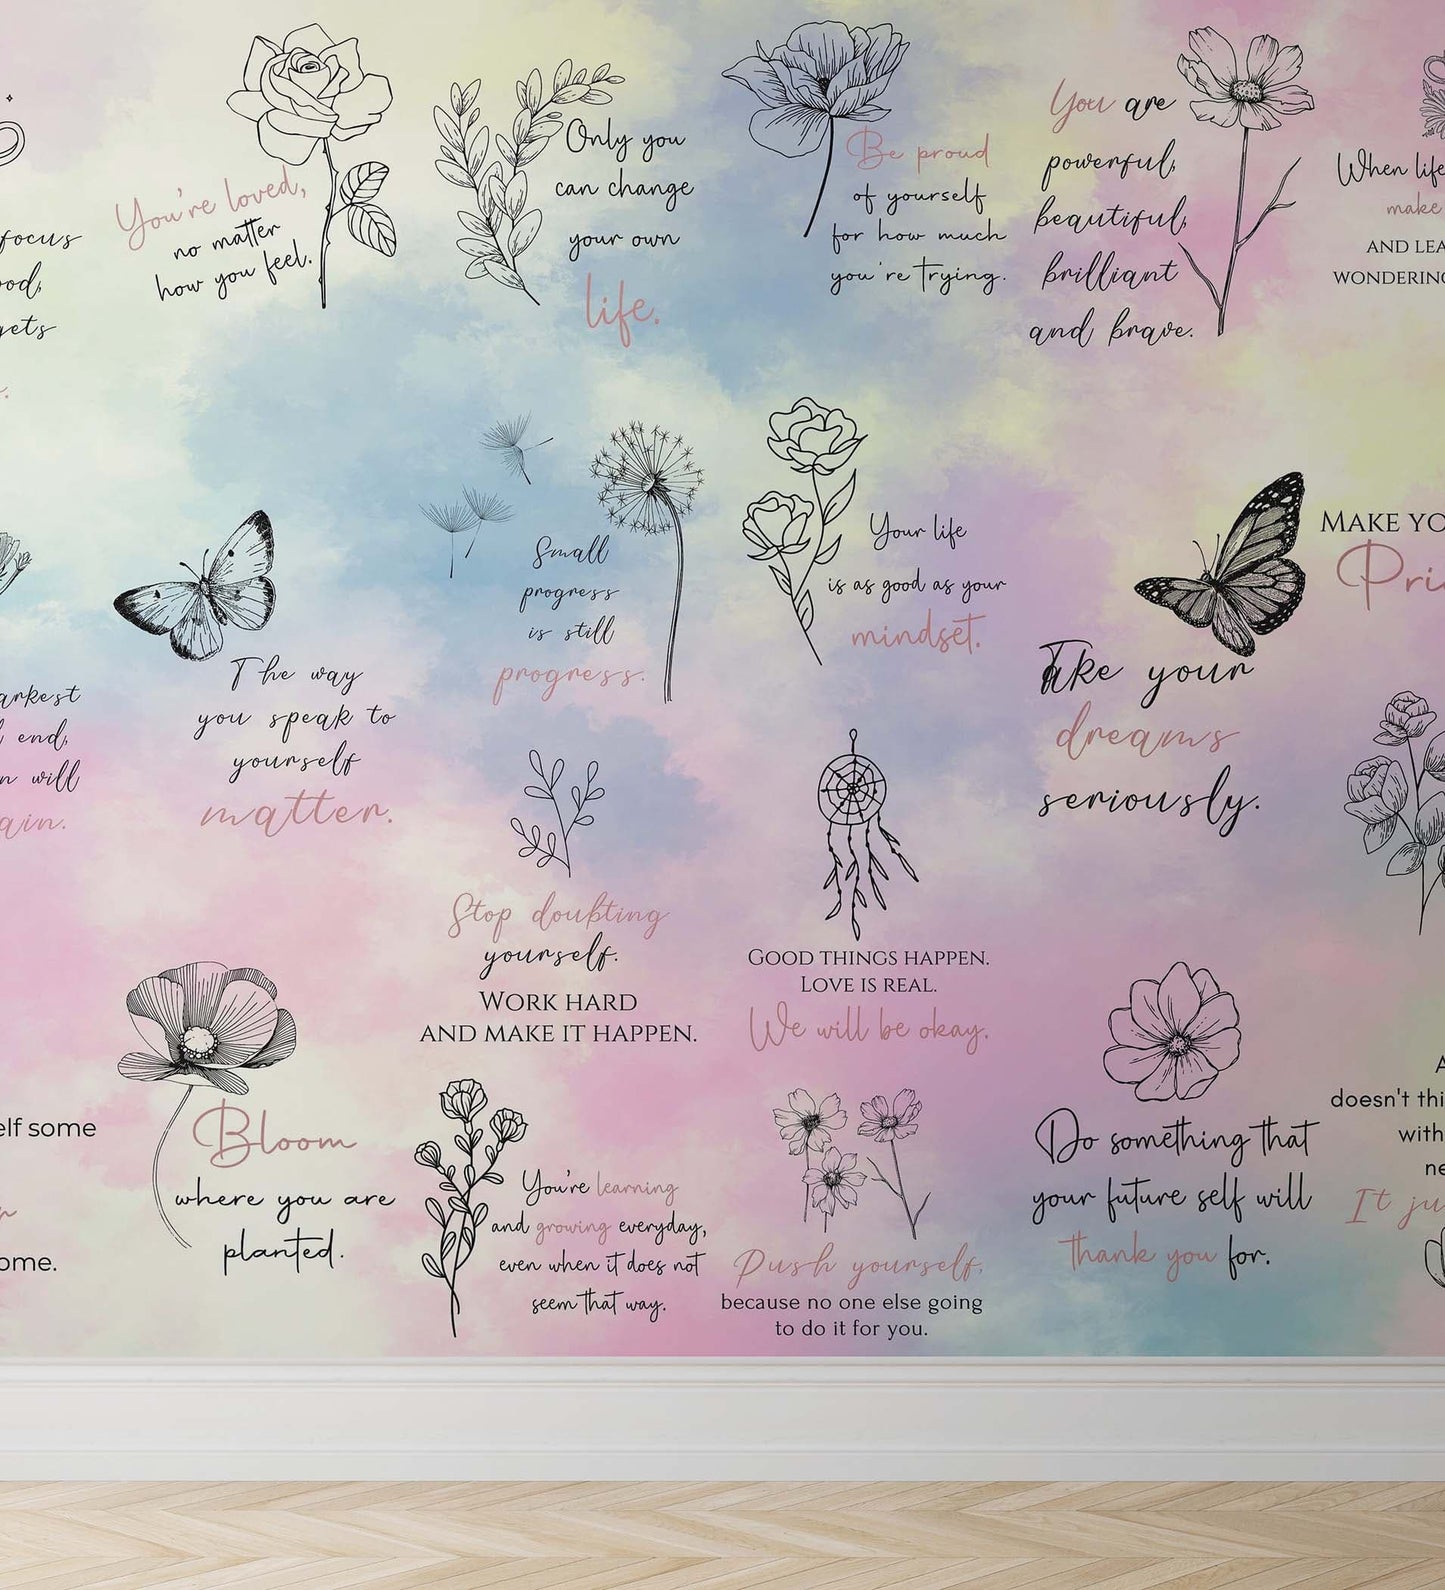 focus
gets
You're loved,
no matter
how you feel.
Only you
can change
your own
life.
Be proud
of yourself
for how much
you're trying.
You are
powerful,
beautiful,
brilliant
and brave.
When life
make
AND
end,
will
The way
you speak to
yourself
matter.
Small
progress
is still
progress.
Your life
is as good as your
mindset.
Take your
dreams
seriously.
MAKE
Stop doubting
yourself.
WORK HARD
AND MAKE IT HAPPEN.
GOOD THINGS HAPPEN.
LOVE IS REAL.
We will be okay.
some
Bloom
where you are
planted.
You're learning
and growing everyday,
even when it does not
seem that way.
Push yourself,
because no one else going
to do it for you.
Do something that
your future self will
thank you for.
doesn't
It